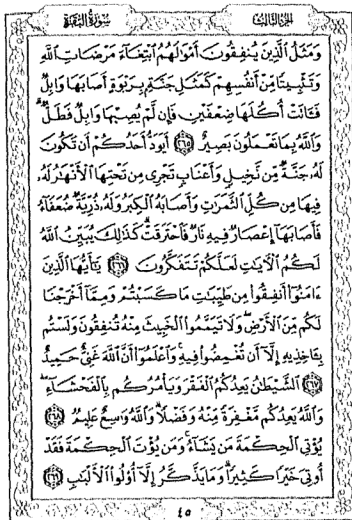 الجزء الثالث
سورة البقرة
وَمَثَلُ الَّذِينَ يُنفِقُونَ أَمْوَالَهُمُ ابْتِغَاءَ مَرْضَاتِ اللَّهِ
وَتَثْبِيتًا مِّنْ أَنفُسِهِمْ كَمَثَلِ جَنَّةٍ بِرَبْوَةٍ أَصَابَهَا وَابِلٌ
فَآتَتْ أُكُلَهَا ضِعْفَيْنِ فَإِن لَّمْ يُصِبْهَا وَابِلٌ فَطَلٌّ
وَاللَّهُ بِمَا تَعْمَلُونَ بَصِيرٌ ٢٦٥ أَيَوَدُّ أَحَدُكُمْ أَن تَكُونَ
لَهُ جَنَّةٌ مِّن نَّخِيلٍ وَأَعْنَابٍ تَجْرِي مِن تَحْتِهَا الْأَنْهَارُ لَهُ
فِيهَا مِن كُلِّ الثَّمَرَاتِ وَأَصَابَهُ الْكِبَرُ وَلَهُ ذُرِّيَّةٌ ضُعَفَاءُ
فَأَصَابَهَا إِعْصَارٌ فِيهِ نَارٌ فَاحْتَرَقَتْ كَذَٰلِكَ يُبَيِّنُ اللَّهُ
لَكُمُ الْآيَاتِ لَعَلَّكُمْ تَتَفَكَّرُونَ ٢٦٦ يَا أَيُّهَا الَّذِينَ
آمَنُوا أَنفِقُوا مِن طَيِّبَاتِ مَا كَسَبْتُمْ وَمِمَّا أَخْرَجْنَا
لَكُم مِّنَ الْأَرْضِ وَلَا تَيَمَّمُوا الْخَبِيثَ مِنْهُ تُنفِقُونَ وَلَسْتُم
بِآخِذِيهِ إِلَّا أَن تُغْمِضُوا فِيهِ وَاعْلَمُوا أَنَّ اللَّهَ غَنِيٌّ حَمِيدٌ
٢٦٧ الشَّيْطَانُ يَعِدُكُمُ الْفَقْرَ وَيَأْمُرُكُم بِالْفَحْشَاءِ
وَاللَّهُ يَعِدُكُم مَّغْفِرَةً مِّنْهُ وَفَضْلًا وَاللَّهُ وَاسِعٌ عَلِيمٌ ٢٦٨
يُؤْتِي الْحِكْمَةَ مَن يَشَاءُ وَمَن يُؤْتَ الْحِكْمَةَ فَقَدْ
أُوتِيَ خَيْرًا كَثِيرًا وَمَا يَذَّكَّرُ إِلَّا أُولُو الْأَلْبَابِ ٢٦٩
٤٥